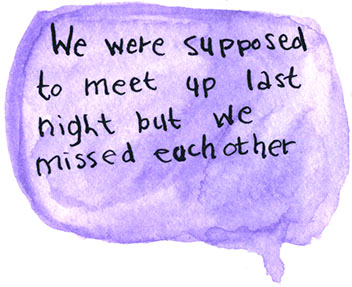 We were supposed
to meet up last
night but we
missed each other